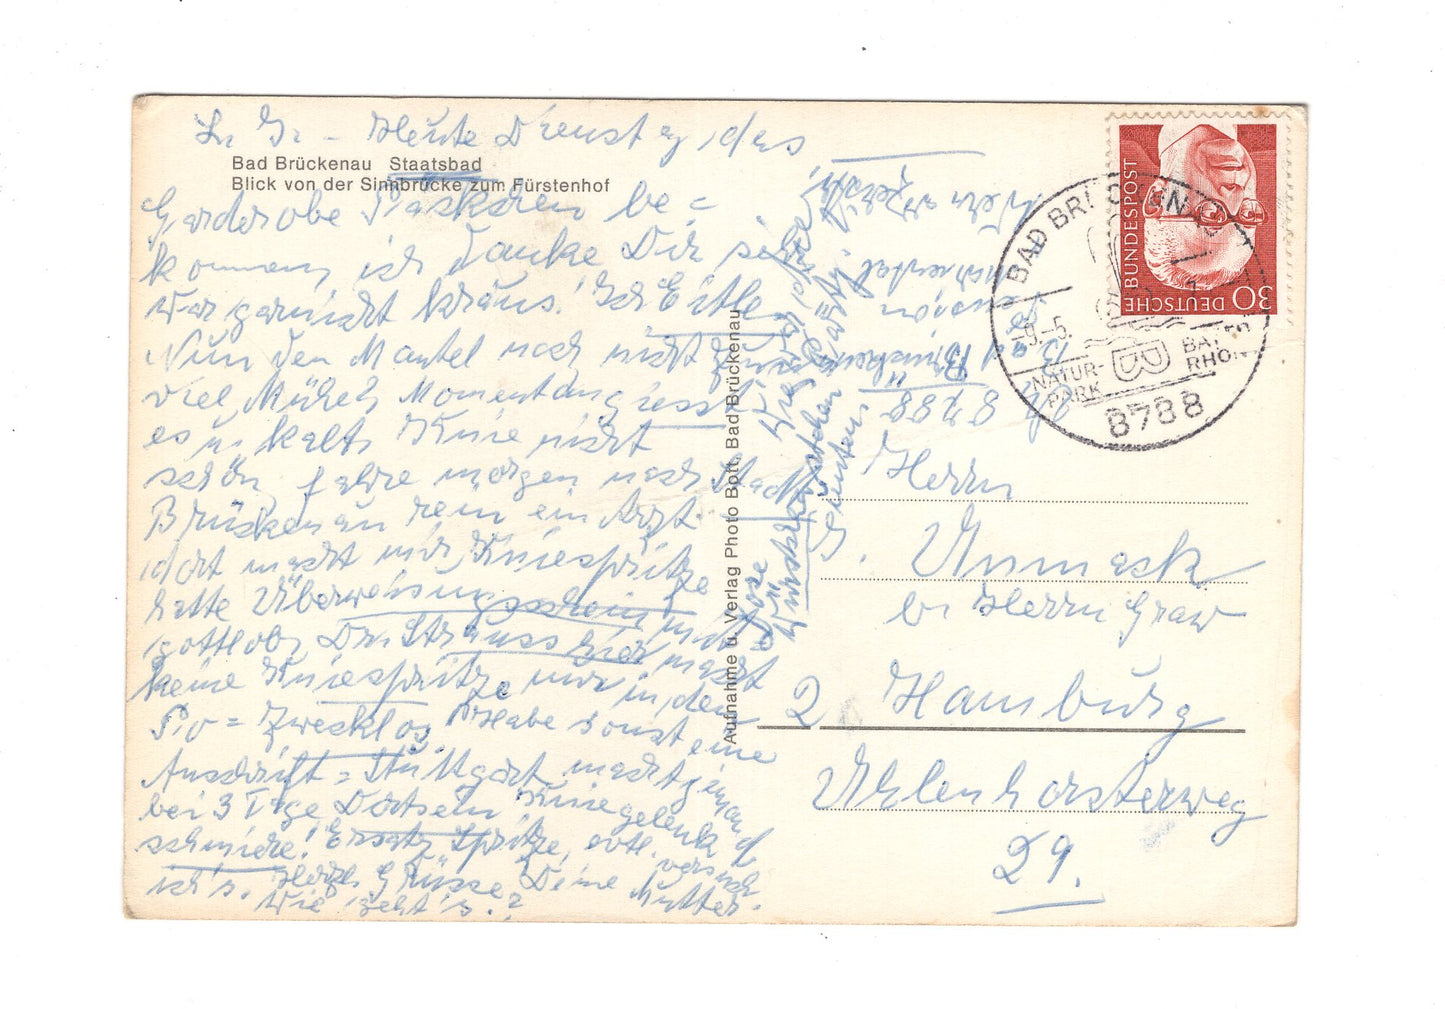 L. G. – Heute Dienstag, das
Bad Brückenau Staatsbad
Blick von der Sinnbrücke zum Fürstenhof
Garderobe Päckchen be=
kommen, ich danke Dir sehr
war garnicht kraus! Ich Eitle
Nun den Mantel noch nicht
viel Mühe! Momentan gießt
es u. kalt. Knie nicht
schön, fahre morgen nach Stadt
Brückenau rein ein Arzt
dort macht mir Kniespritze
hatte Überweisungsschein mit
gottlob, Dr. Strauss hier macht
keine Kniespritze, nur in den
Po = Zwecklos. Habe sonst eine
Anschrift = Stuttgart macht jemand
bei 3 Tage Dortsein Kniegelenk
schmiere! Ersatz Spritze, evtl. versuch
ich's. Herzl. Grüsse Deine Mutter.
Wie geht's?
Aufnahme u. Verlag Photo Bott, Bad Brückenau
Dose
Würstchen
hinten
8788
Bad Brückenau
Pension
Sinntal
DEUTSCHE BUNDESPOST
30
BAD BRÜCKENAU
-9.-5.
NATUR-
PARK
BAY.
RHÖN
8788
Herrn
G. Unmack
b. Herrn Graw
2 Hamburg
Uhlenhorsterweg
29.